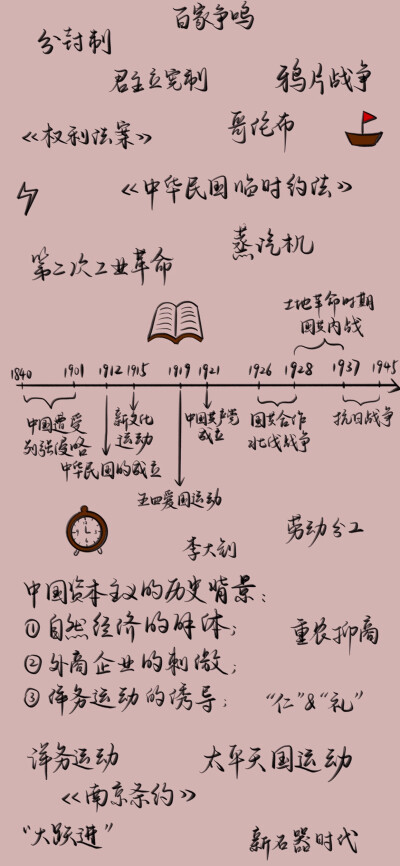 百家争鸣
分封制
君主立宪制
鸦片战争
《权利法案》
哥伦布
《中华民国临时约法》
蒸汽机
第二次工业革命
土地革命时期
国共内战
1840 1901 1912 1915 1919 1921 1926 1928 1937 1945
中国遭受
列强侵略
新文化
运动
中国共产党
成立
国共合作
北伐战争
抗日战争
中华民国的成立
五四爱国运动
劳动分工
李大钊
中国资本主义的历史背景：
①自然经济的解体；
重农抑商
②外商企业的刺激；
③洋务运动的诱导；
“仁”&“礼”
洋务运动
太平天国运动
《南京条约》
“大跃进”
新石器时代